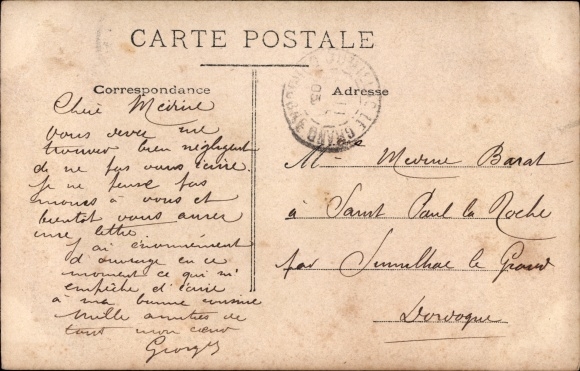 CARTE POSTALE
Correspondance
Adresse
JUMILHAC-LE-GRAND
DORDOGNE
05
Chère Médrine
Vous devez me
trouver bien négligent
de ne pas vous écrire.
Je ne pense pas
moins à vous et
bientôt vous aurez
une lettre
J'ai énormément
d'ouvrage en ce
moment ce qui m'
empêche d'écrire
à ma bonne cousine
Mille amitiés de
tout mon cœur
Georges
Mme Médrine Barat
à Saint Paul la Roche
par Jumilhac le Grand
Dordogne